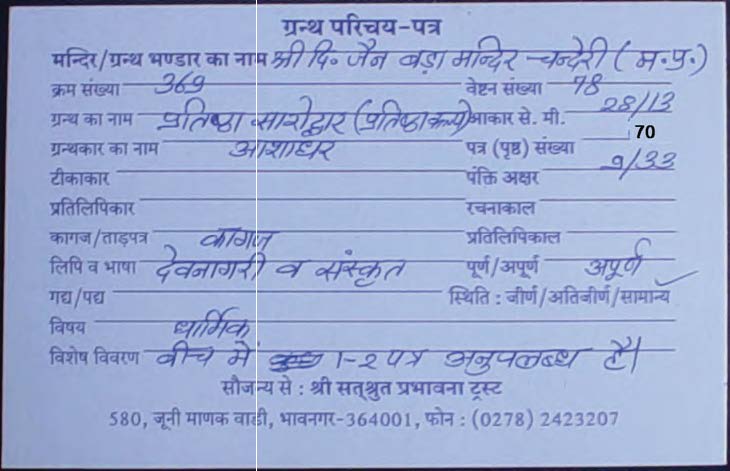 ग्रन्थ परिचय-पत्र
मन्दिर/ग्रन्थ भण्डार का नाम श्री दि॰ जैन बड़ा मन्दिर चन्देरी (म.प्र.)
क्रम संख्या 369 वेष्टन संख्या 78
ग्रन्थ का नाम प्रतिष्ठा सारोद्धार (प्रतिष्ठाकल्प) आकार से. मी. 28/13
ग्रन्थकार का नाम आशाधर पत्र (पृष्ठ) संख्या 70
टीकाकार पंक्ति अक्षर 9/33
प्रतिलिपिकार रचनाकाल
कागज/ताड़पत्र कागज प्रतिलिपिकाल
लिपि व भाषा देवनागरी व संस्कृत पूर्ण/अपूर्ण अपूर्ण
गद्य/पद्य स्थिति : जीर्ण/अतिजीर्ण/सामान्य
विषय धार्मिक
विशेष विवरण बीच में 1-2 पत्र अनुपलब्ध है।
सौजन्य से : श्री सत्श्रुत प्रभावना ट्रस्ट
580, जूनी माणक वाडी, भावनगर-364001, फोन : (0278) 2423207